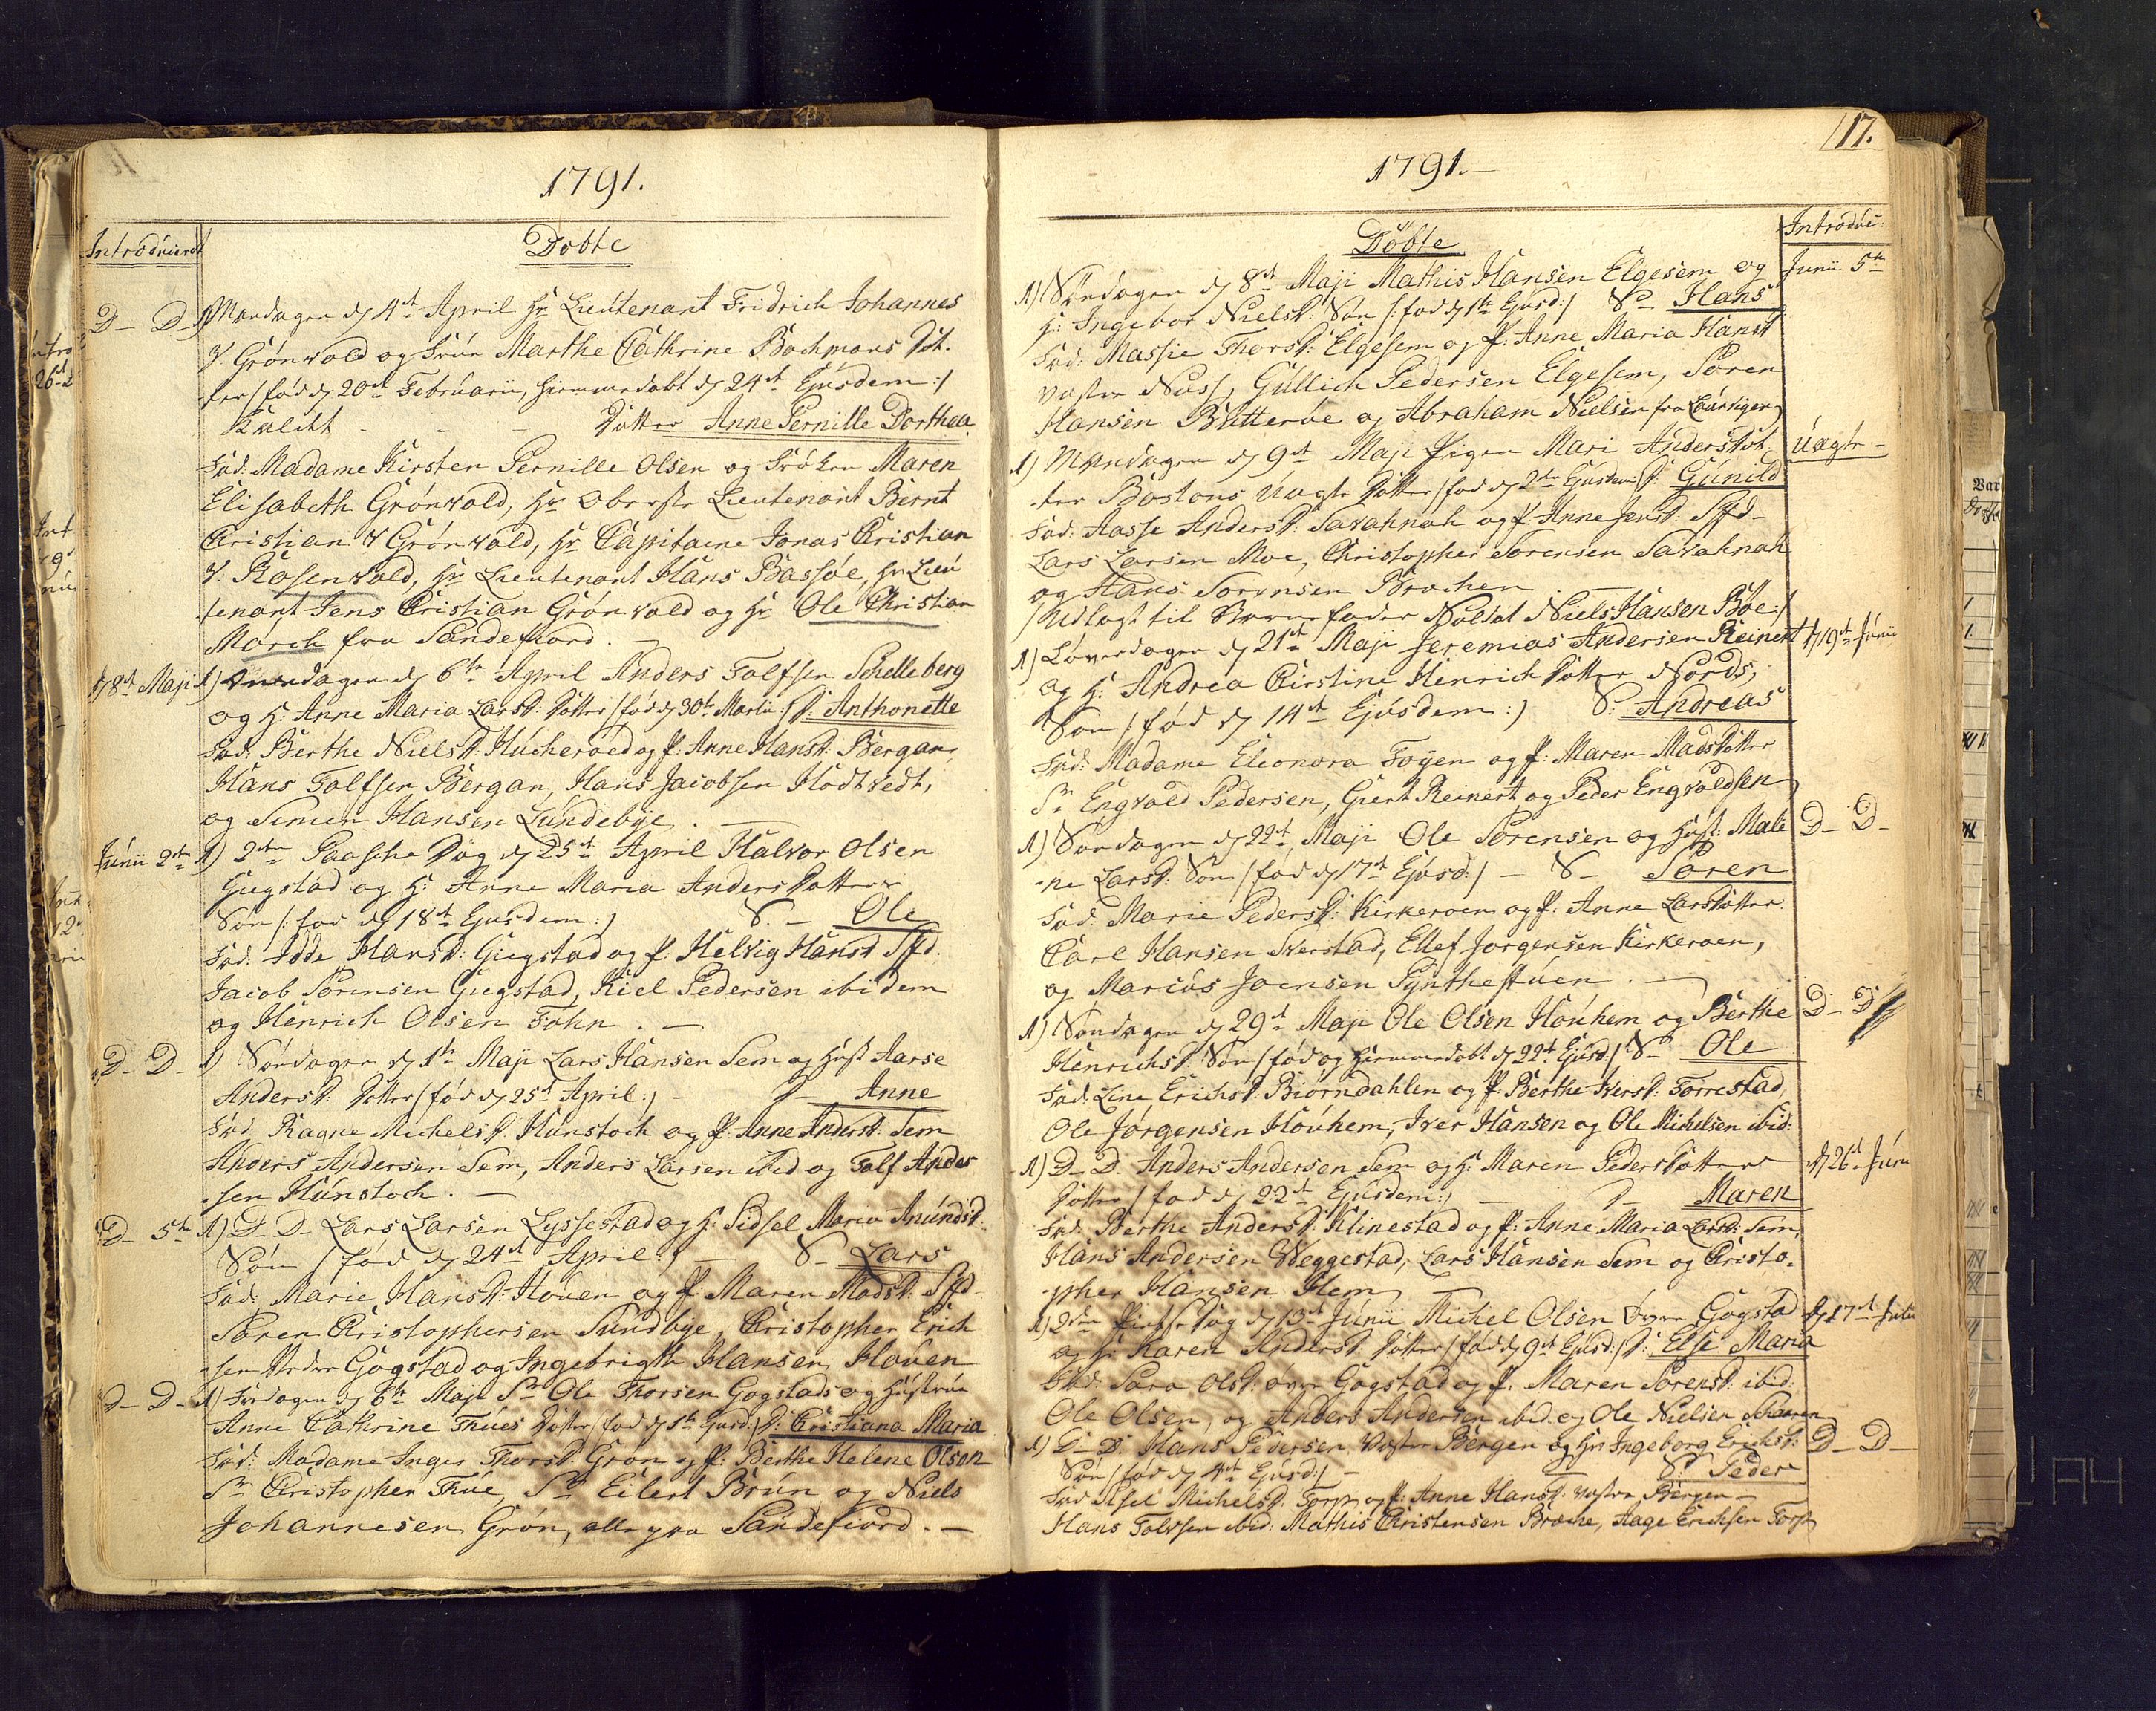 1791.
Introducerdt
Döbte
D- D- 1) Mandagen d 4de April Hr Lieutenant Fridrich Johannes
V. Grönvold og Frue Marthe Cathrine Bachmans Dot-
ter /: föd d 20de Februarii, hiemmedöbt d 24de Ejusdem :/
Kaldet - - - Dotter Anne Pernille Dorthea
Fad: Madame Kirsten Pernille Olsen og Fröken Maren
Elisabeth Grönvold, Hr Oberste Lieutenant Bernt
Christian V Grönvold, Hr Capitaine Jonas Christian
V. Rosenvold, Hr Lieutenant Hans Bassöe, Hr Lieu
tenant Jens Christian Grönvold og Hr Ole Christian
March fra Sandefiord.
d 8de Maji 1) Onsdagen d 6te April Anders Tolfsen Schelleberg
og H: Anne Maria Larsd: Dotter /: föd d 30te Martii :/ D: Anthonette
Fad: Berthe Nielsd: Hucheroed og P: Anne Hansd: Bergan,
Hans Tolfsen Bergan, Hans Jacobsen Hodtvedt,
og Simen Hansen Lundebye. —
Junii 2den 1) 2den Paasche Dag d 25de April Halvor Olsen
Giegstad og H: Anne Maria Anders Dotters
Sön /: föd d 18de Ejusdem :/ S. — Ole
Fad: Idde Hansd: Giegstad og P: Helvig Hansd Sfd.
Jacob Sörensen Giegstad, Kiel Pedersen ibidem
og Henrich Olsen Fohn. —
D- D- 1) Söndagen d 1te Maji Lars Hansen Sem og Hust Aarse
Andersd: Dotter /: föd d 25de April :/ - D- Anne
Fad: Ragne Michelsd: Hunstoch og P: Anne Andersd: Sem
Anders Andersen Sem, Anders Larsen ibid og Tolf Ander
-sen Hunstoch. —
D- 5te 1) D- D- Lars Larsen Lyssestad og H: Sidsel Maria Amundsd:
Sön /: föd d 24de April :/ — S- Lars
Fad: Marie Hansd: Houen og P: Maren Madsd: Sfd-
Sören Christophersen Sundbye, Christopher Erich
-sen Nedre Gogstad og Ingebrigth Hansen Houen
D- D- 1) Fredagen d 6te Maji Sr Ole Thorsen Gogstads og Hustrue
Anne Cathrine Thues Dotter /: föd d 1te Ejusd :/ D: Christiana Maria
Fad: Madame Inger Thorsd: Grön og P: Berthe Helene Olsen
Sr Christopher Thue, Sr Eilert Brun og Niels
Johannesen Grön, alle fra Sandefiord. —
17.
1791. —
Döbte
Introduc:
1) Söndagen d 8de Maji Mathis Hansen Elgesem og Junii 5te
H: Ingebor Nielsd: Sön /: föd d 1te Ejusd :/ S- Hans
Fad: Massie Thorsd: Elgesem og P: Anne Maria Hansd
vestre Næss, Gullich Pedersen Elgesem, Sören
Hansen Butteröe og Abraham Nielsen fra Laurvigen
1) Mandagen d 9de Maji Pigen Mari Andersdot- Uægte -
ter Bostons Uægte Dotter /: föd d 2den Ejusdem :/ D: Gunild
Fad: Aasse Andersd: Savahnah og P: Anne Jensd: Sfd-
Lars Larsen Moe, Christopher Sörensen Savahnah
og Hans Sörensen Brochen
/: Udlagt til Barnefader Soldat Niels Hansen Böe :/
1) Löverdagen d 21de Maji Jeremias Andersen Reinert d 19de Junii
og H: Andrea Kirstine Henrich Dotter Nords,
Sön /: föd d 14de Ejusdem :/ S: Andreas
Fad: Madame Eleonora Foyen og P: Maren Mads Dotter
Sr Engvold Pedersen, Giert Reinert og Peder Engvoldsen
1) Söndagen d 22de Maji Ole Sörensen og Hust: Male D- D-
-ne Larsd: Sön /: föd d 17de Ejusd :/ — S- Sören
Fad: Marie Pedersd: Kirkeroen og P: Anne Larsdotter
Carl Hansen Sverstad, Ellef Jorgensen Kirkeroen,
og Marcus Joensen Pynthestuen. —
1) Söndagen d 29de Maji Ole Olsen Houhem og Berthe D- D
Henrichsd: Sön /: föd og hiemmedöbt d 22de Ejusd :/ S- Ole
Fad: Line Erichsd: Biörndahlen og P: Berthe Iversd: Torrestad,
Ole Jörgensen Houhem, Iver Hansen og Ole Michelsen ibid:
1) D- D. Anders Andersen Sem og H: Maren Peders Dotters d 26de Junii
Dotter /: föd d 22de Ejusdem :/ — D- Maren
Fad: Berthe Andersd: Klinestad og P: Anne Maria Larsd: Sem,
Hans Andersen Weggestad, Lars Hansen Sem og Christo-
-pher Hansen Hem
1) 2den Pintse Dag d 13de Junii Michel Olsen övre Gogstad d 17de Julii
og H: Karen Andersd: Dotter /: föd d 9de Ejusd :/ D: Else Maria
Fad: Sara Olsd: övre Gogstad og P: Maren Sörensd: ibid:
Ole Olsen, og Anders Andersen ibid. og Ole Nielsen Schaaren
1) D- D. Hans Pedersen vestre Bergen og Hu Ingeborg Erichsd: D- D-
Sön /: föd d 4de Ejusd :/ — S: Peder
Fad Sisel Michelsd: Torp og P: Anne Hansd: vestre Bergen —
Hans Tolvsen ibid: Mathis Christensen Broche, Aage Erichsen Torp